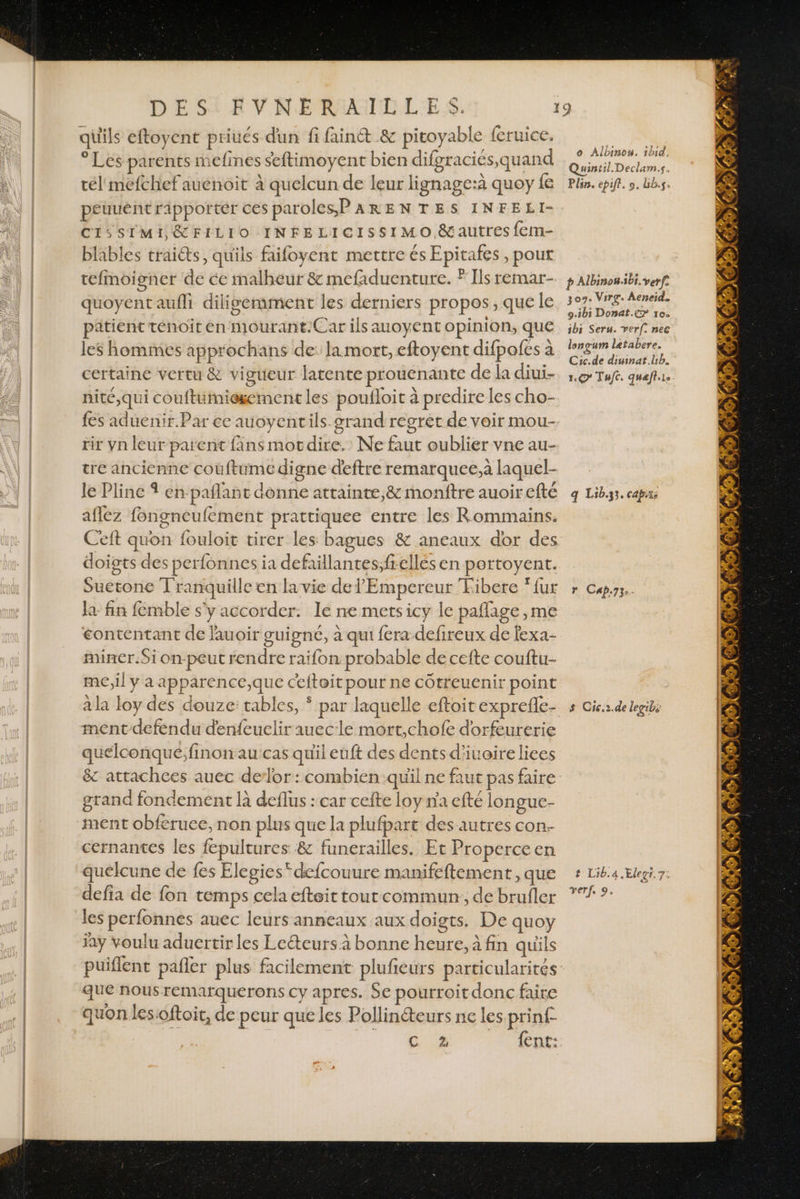 DES FVNERAILLES. 19
qu'ils eſtoyent priués d'un ſi ſainct & pitoyable ſeruice.
° Les parents meſmes s'eſtimoyent bien diſgraciés, quand
tel meſchef auenoit à quelcun de leur lignage: à quoy ſe
peuuent rapporter ces paroles, PARENTES INFELI-
CISSIMI, & FILIO INFELICISSIMO, & autres ſem-
blables traicts, qu'ils faiſoyent mettre és Epitafes, pour
teſmoigner de ce malheur & meſaduenture. ᵖ Ils remar-
quoyent auſſi diligemment les derniers propos, que le
patient tenoit en mourant: Car ils auoyent opinion, que
les hommes approchans de la mort, eſtoyent diſpoſes à
certaine vertu & vigueur latente prouenante de la diui-
nité, qui couſtumierement les pouſſoit à predire les cho-
ſes aduenir. Par ce auoyent ils grand regret de voir mou-
rir vn leur parent ſans mot dire. Ne faut oublier vne au-
tre ancienne couſtume digne d'eſtre remarquee, à laquel-
le Pline q en paſſant donne attainte, & monſtre auoir eſté
aſſez ſongneuſement prattiquee entre les Rommains.
C'eſt qu'on ſouloit tirer les bagues & aneaux d'or des
doigts des perſonnes ia defaillantes, ſi elles en portoyent.
Suetone Tranquille en la vie de l'Empereur Tibere ʳ ſur
la fin ſemble s'y accorder. Ie ne mets icy le paſſage, me
contentant de l'auoir guigné, à qui ſera deſireux de l'exa-
miner. Si on peut rendre raiſon probable de ceſte couſtu-
me, il y a apparence, que c'eſtoit pour ne côtreuenir point
à la loy des douze tables, ˢ par laquelle eſtoit expreſſe-
ment defendu d'enſeuelir auec le mort, choſe d'orfeurerie
quelconque, ſinon au cas qu'il euſt des dents d'iuoire liees
& attachees auec de l'or: combien qu'il ne faut pas faire
grand fondement là deſſus: car ceſte loy n'a eſté longue-
ment obſeruee, non plus que la pluſpart des autres con-
cernantes les ſepultures & funerailles. Et Properce en
quelcune de ſes Elegies ᵗ deſcouure manifeſtement, que
deſia de ſon temps cela eſtoit tout commun, de bruſler
les perſonnes auec leurs anneaux aux doigts. De quoy
i'ay voulu aduertir les Lecteurs à bonne heure, à fin qu'ils
puiſſent paſſer plus facilement pluſieurs particularités
que nous remarquerons cy apres. Se pourroit donc faire
qu'on les oſtoit, de peur que les Pollincteurs ne les prinſ-
C 2 ſent:
o Albinou. ibid.
Quintil. Declam. 5.
Plin. epiſt. 9. lib. 5.
p Albinou. ibi. verſ.
307. Virg. Aeneid.
9. ibi Donat. & 10.
ibi Seru. verſ. nec
longum lætabere.
Cic. de diuinat. lib.
1. & Tuſc. quæſt. 1.
q Lib. 33. cap. 1.
r Cap. 73.
s Cic. 2. de legib.
t Lib. 4. Elegi. 7.
verſ. 9.